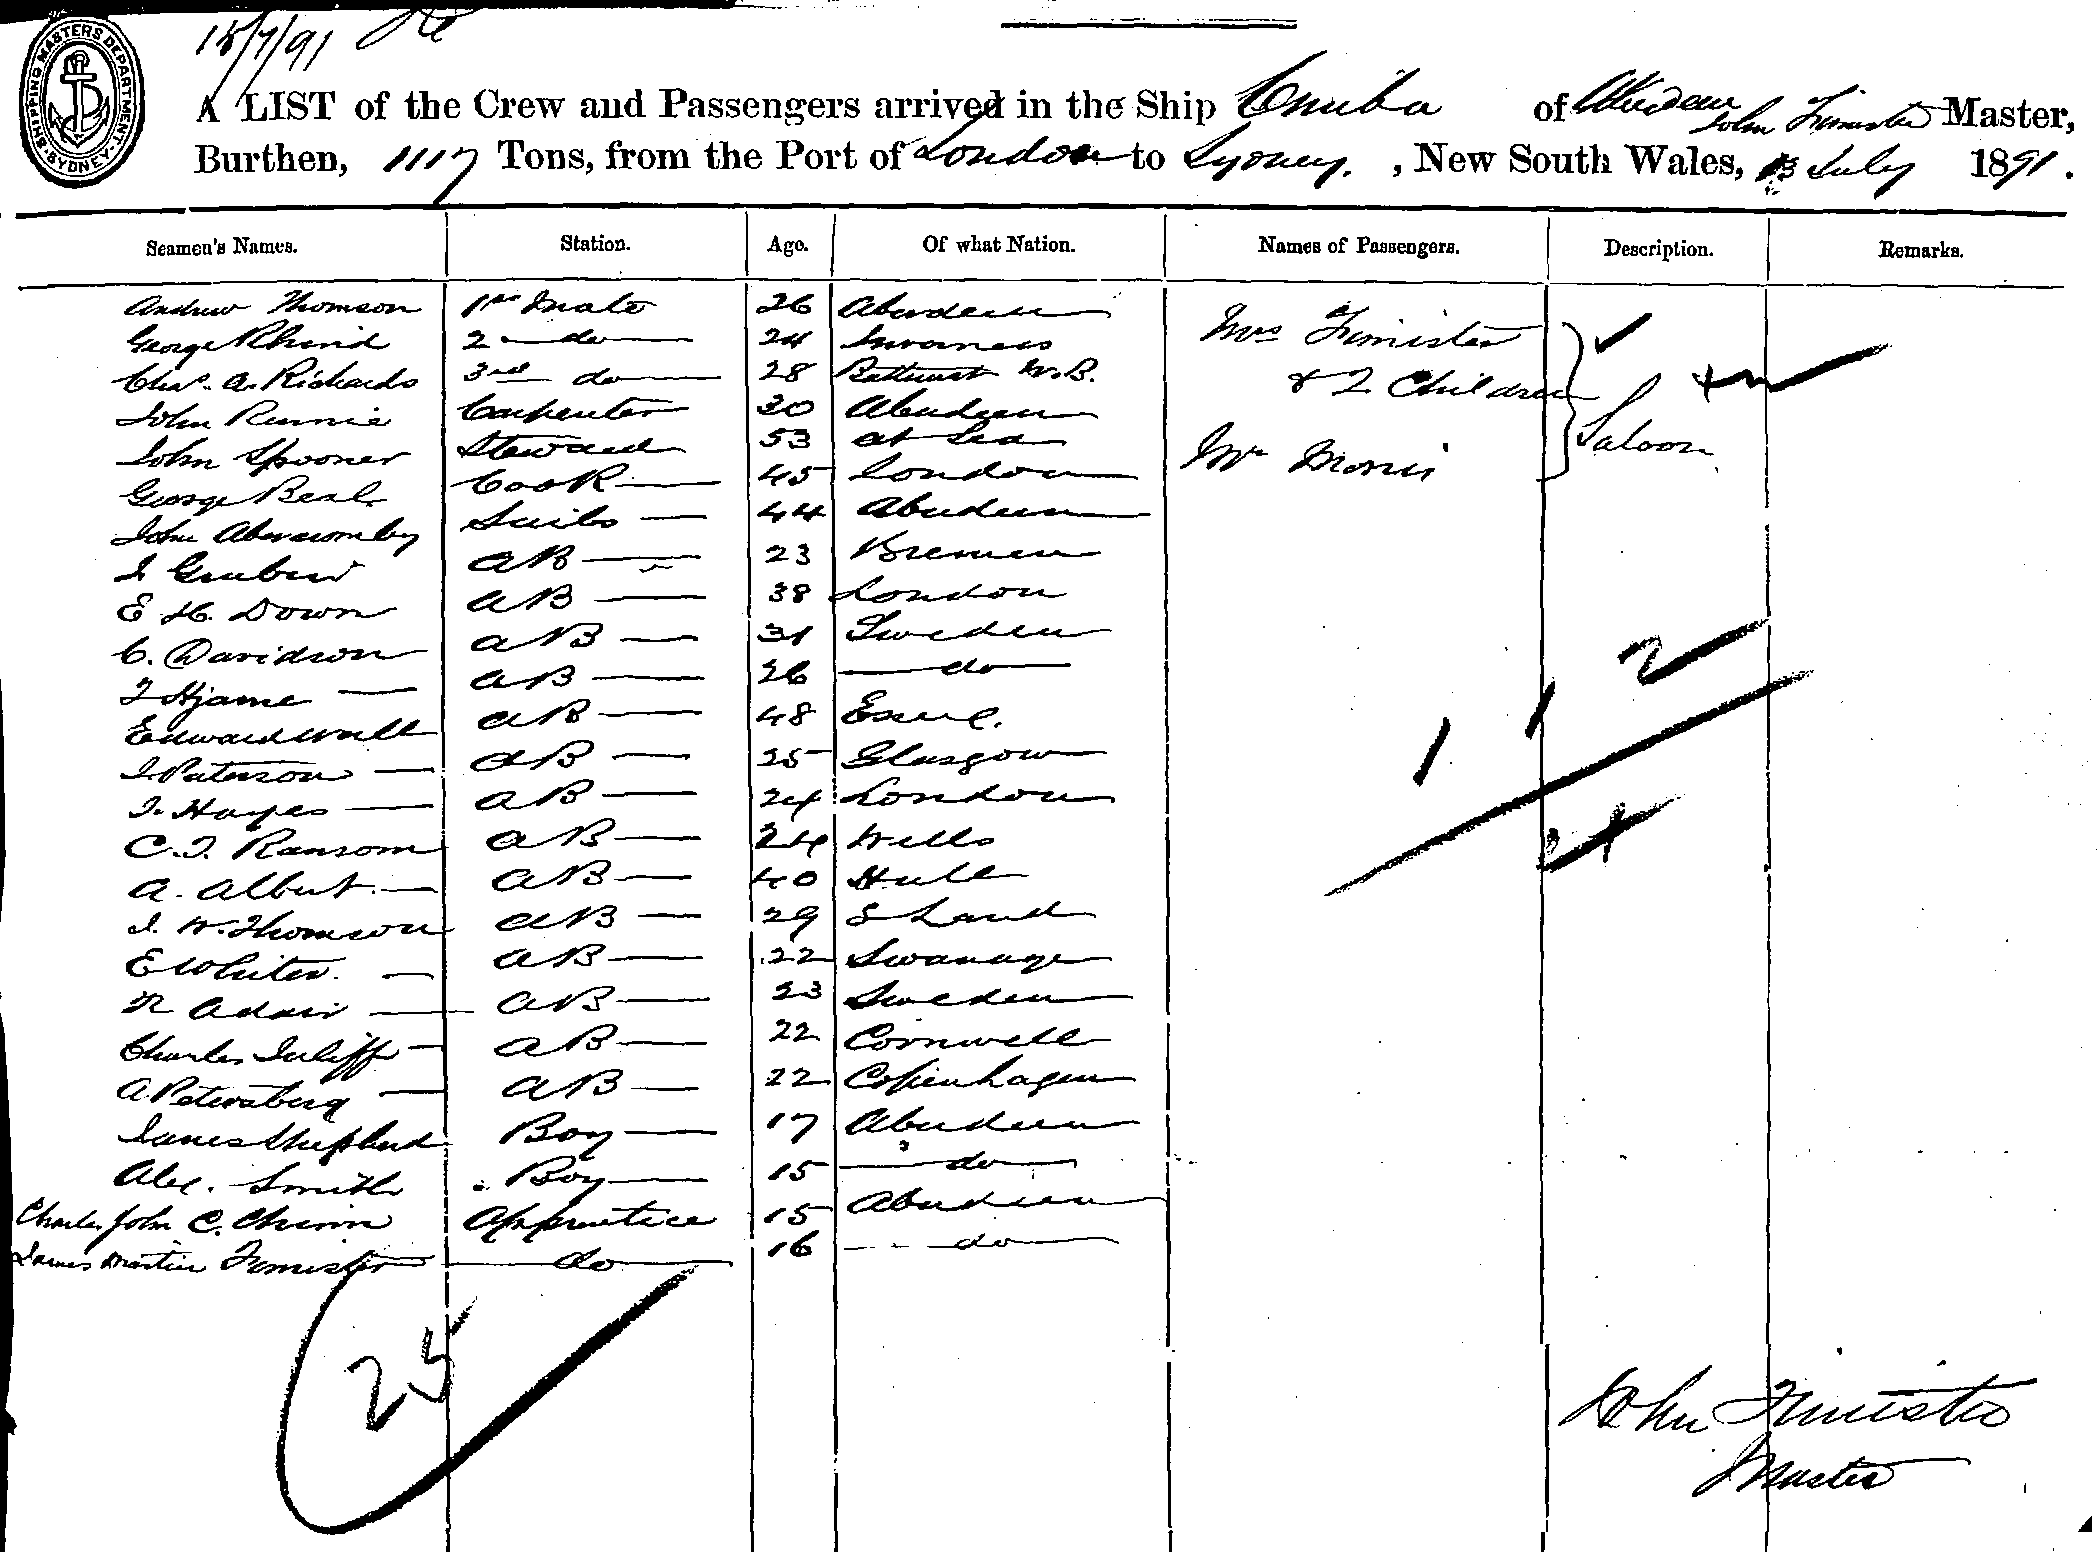 15/7/91
SHIPPING MASTERS DEPARTMENT. SYDNEY.
A LIST of the Crew and Passengers arrived in the Ship of Aberdeen John Fimister Master,
Burthen, 1117 Tons, from the Port of London to Sydney. , New South Wales, 13 July 1891.
Seamen's Names. Station. Age. Of what Nation. Names of Passengers. Description. Remarks.
Andrew Thomson 1st Mate 26 Aberdeen Mrs Fimister
George Rhind 2 do 24 Inverness
Chas. A. Richards 3rd do 28 Bathurst N.B. & 2 Children
John Rennie Carpenter 30 Aberdeen Saloon
John Spooner Steward 53 at Sea Mr Morris
George Beal Cook 45 London
John Abercromby Sails 44 Aberdeen
J AB 23 Bremen
E H. Down AB 38 London
C. Davidson AB 31 Sweden
AB 26 do
Edward Wall AB 48
J Paterson AB 25 Glasgow
J. Hayes AB 24 London
C. J. Ransom AB 24 Wells
A. Albert AB 40 Hull
J. W. Thomson AB 29 S Land
E White AB 22 Swanage
R Adair AB 23 Sweden
Charles AB 22 Cornwell
A Petersberg AB 22 Copenhagen
James Shepherd Boy 17 Aberdeen
Alex. Smith Boy 15 do
Charles John C. Apprentice 15 Aberdeen
James Martin Fimister do 16 do
2
1 1
25
John Fimister
Master